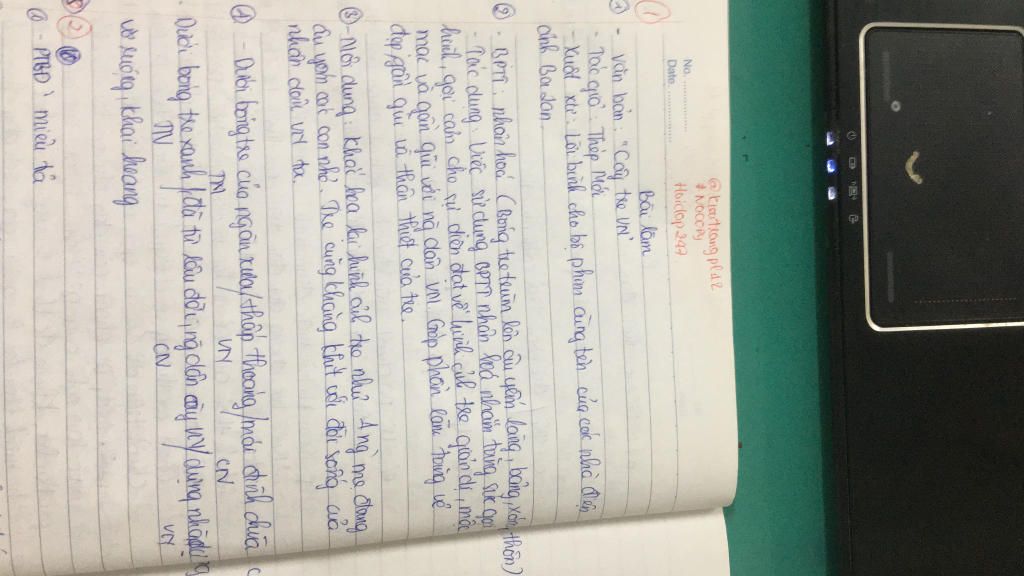 @kranthongpl42
#NOCOPY
Hoidap247
No. ..........
Date. ..........
1
Bài làm
① - Văn bản: "Cây tre VN"
- Tác giả: Thép Mới
- Xuất xứ: Lời bình cho bộ phim cùng tên của các nhà điện
ảnh Ba Lan.
② - BPTT: nhân hoá (Bóng tre trùm lên âu yếm làng, bảng, xóm, thôn)
- Tác dụng: Việc sử dụng BPTT nhân hoá nhằm tăng sức gợi
hình, gợi cảm cho sự diễn đạt về hình ảnh tre giản dị, mộc
mạc và gần gũi với ng dân VN. Góp phần làm tăng vẻ
đẹp gần gũi và thân thiết của tre.
③ - Nội dung: Khắc hoạ lại hình ảnh tre như 1 ng mẹ đang
âu yếm cái con nhỏ. Tre cũng khăng khít với đời sống của
nhân dân VN ta.
④ - Dưới bóng tre của ngàn xưa/thấp thoáng/mái đình chùa c
TN VN CN
Dưới bóng tre xanh/đã từ lâu đời, ng dân cày VN/dựng nhà dựng
TN CN VN
vỡ ruộng khai hoang
2
① - PTBĐ: miêu tả